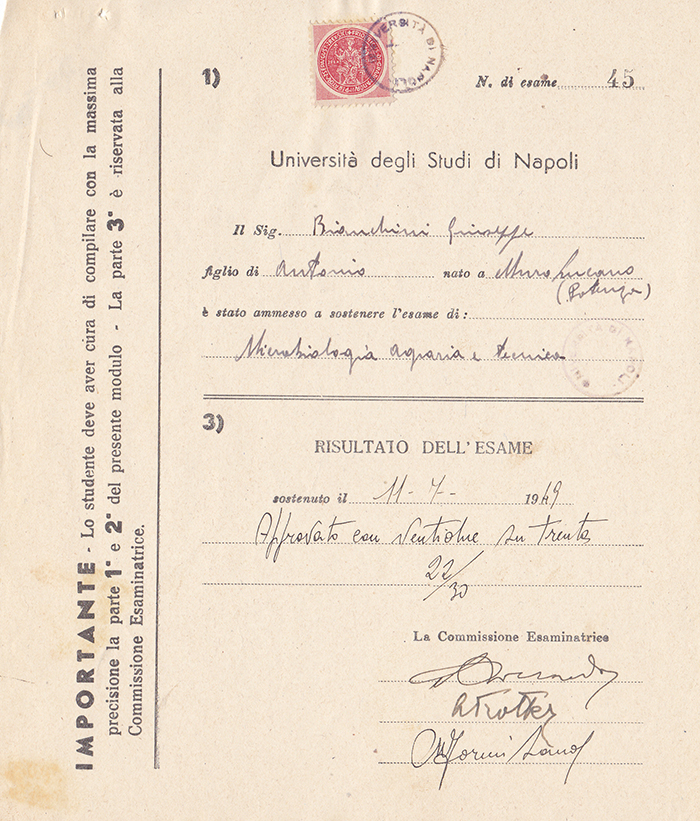 UNIVERSITÀ DI NAPOLI
1)
N. di esame 45
Università degli Studi di Napoli
Il Sig. Bianchini Giuseppe
figlio di Antonio nato a Muro Lucano
(Potenza)
è stato ammesso a sostenere l'esame di:
Microbiologia agraria e tecnica
UNIVERSITÀ DI NAPOLI
3)
RISULTATO DELL'ESAME
sostenuto il 11-7- 1949
Approvato con ventidue su trenta
22/30
La Commissione Esaminatrice
IMPORTANTE - Lo studente deve aver cura di compilare con la massima
precisione la parte 1ª e 2ª del presente modulo - La parte 3ª è riservata alla
Commissione Esaminatrice.